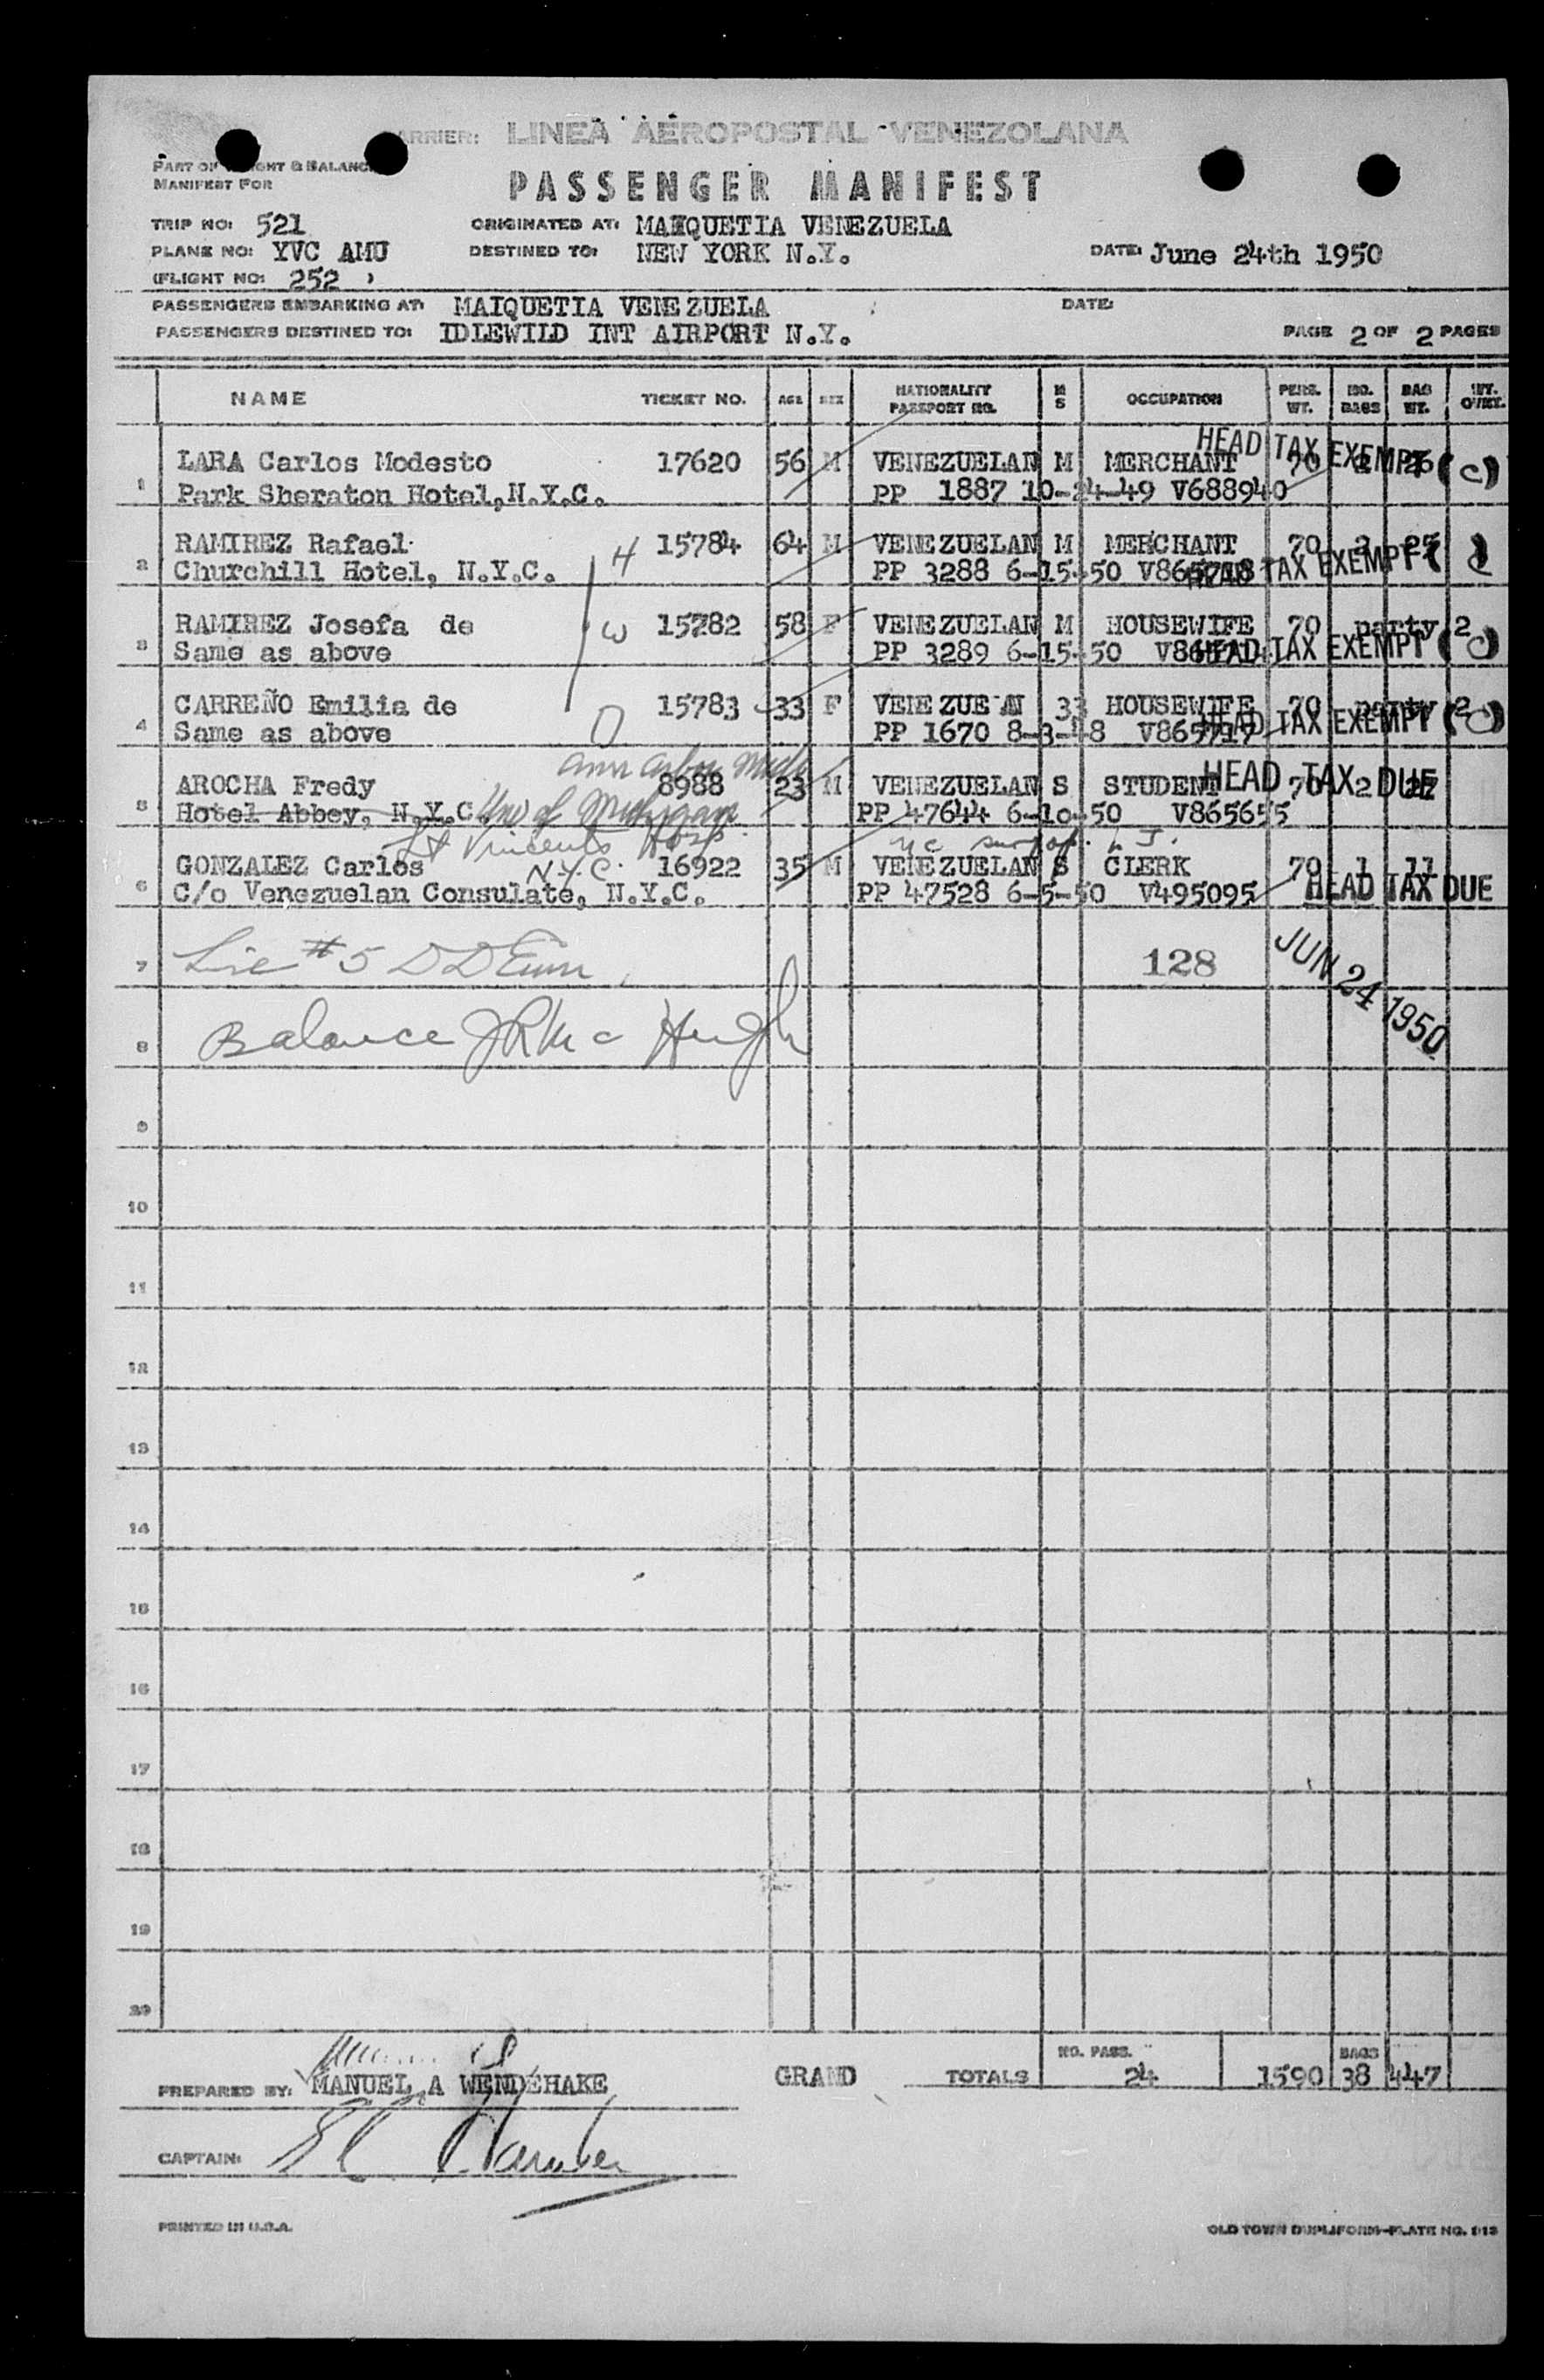 CARRIER: LINEA AEROPOSTAL VENEZOLANA
PART OF WEIGHT & BALANCE
MANIFEST FOR
PASSENGER MANIFEST
TRIP NO: 521 ORIGINATED AT: MAIQUETIA VENEZUELA
PLANE NO: YVC AMU DESTINED TO: NEW YORK N.Y. DATE: June 24th 1950
(FLIGHT NO: 252 )
PASSENGERS EMBARKING AT: MAIQUETIA VENEZUELA DATE:
PASSENGERS DESTINED TO: IDLEWILD INT AIRPORT N.Y. PAGE 2 OF 2 PAGES
NAME TICKET NO. AGE SEX NATIONALITY PASSPORT NO. M S OCCUPATION PERS. WT. NO. BAGS BAG WT. WT. OVER.
HEAD TAX EXEMPT (C)
1 LARA Carlos Modesto 17620 56 M VENEZUELAN M MERCHANT 70 26
Park Sheraton Hotel, N.Y.C. PP 1887 10-24-49 V688940
2 RAMIREZ Rafael H 15784 64 M VENEZUELAN M MERCHANT 70 2 25
Churchill Hotel, N.Y.C. PP 3288 6-15-50 V865718 HEAD TAX EXEMPT
3 RAMIREZ Josefa de W 15782 58 F VENEZUELAN M HOUSEWIFE 70 party 2
Same as above PP 3289 6-15-50 HEAD TAX EXEMPT (C)
4 CARREÑO Emilia de D 15783 33 F VENEZUELAN 33 HOUSEWIFE 70 party 2
Same as above PP 1670 8-3-48 V865717 HEAD TAX EXEMPT (C)
Ann Arbor Mich
5 AROCHA Fredy 8988 23 M VENEZUELAN S STUDENT 70 2 27 HEAD TAX DUE
Hotel Abbey, N.Y.C. Univ of Michigan PP 47644 6-10-50 V865655
St Vincents Hosp.
6 GONZALEZ Carlos N.Y.C. 16922 35 M VENEZUELAN S CLERK 70 1 11
C/o Venezuelan Consulate, N.Y.C. PP 47528 6-5-50 V495095 HEAD TAX DUE
7 Line #5 128 JUN 24 1950
8 Balance JR Mc Hugh
9
10
11
12
13
14
15
16
17
18
19
20
PREPARED BY: MANUEL A WENDEHAKE GRAND TOTALS NO. PASS. 24 1590 BAGS 38 447
CAPTAIN:
PRINTED IN U.S.A. OLD TOWN DUPLIFORM-PLATE NO. 513